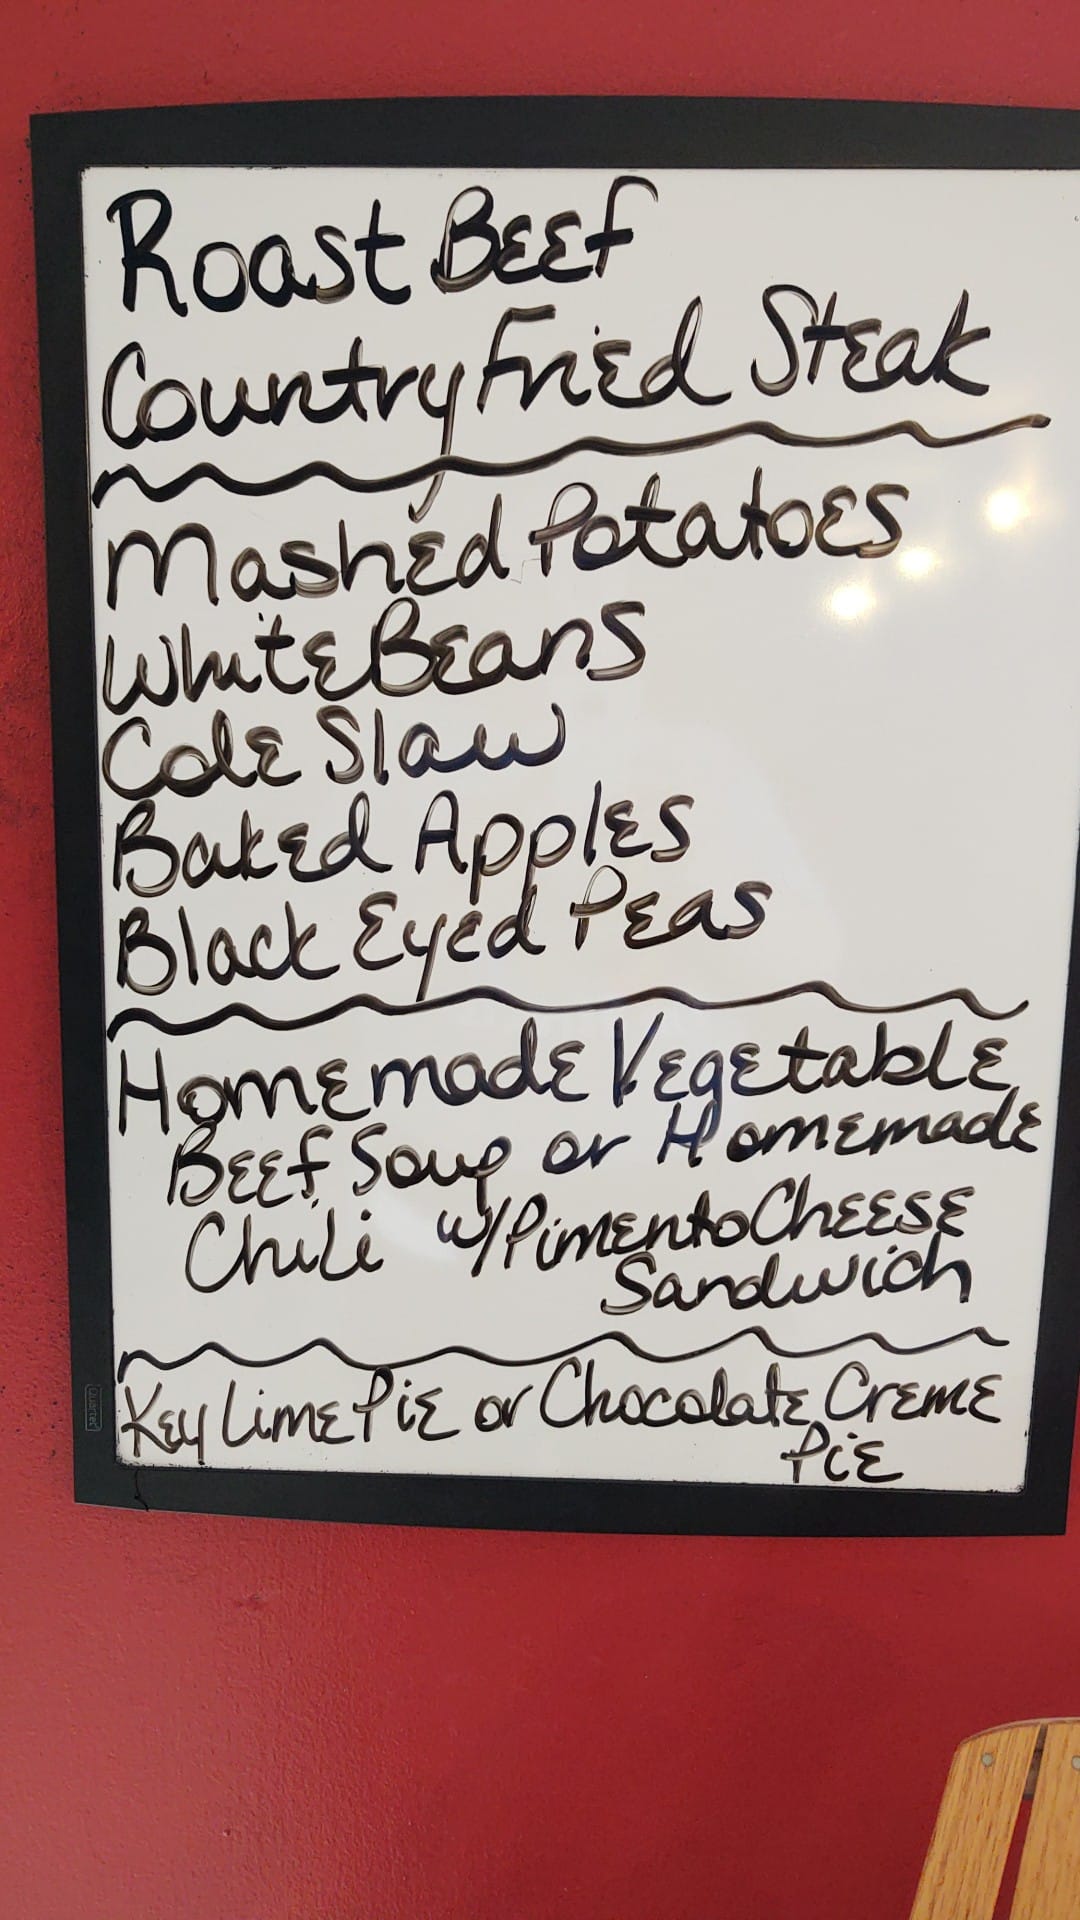 Roast Beef
Country Fried Steak
Mashed Potatoes
White Beans
Cole Slaw
Baked Apples
Black Eyed Peas
Homemade Vegetable
Beef Soup or Homemade
Chili w/Pimento Cheese
Sandwich
Key Lime Pie or Chocolate Creme
Pie
Quartet